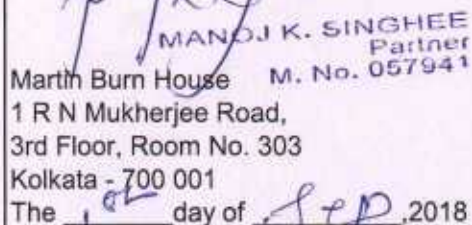 MANOJ K. SINGHEE
Partner
M. No. 057941
Martin Burn House
1 R N Mukherjee Road,
3rd Floor, Room No. 303
Kolkata - 700 001
The 1st day of Sep,2018